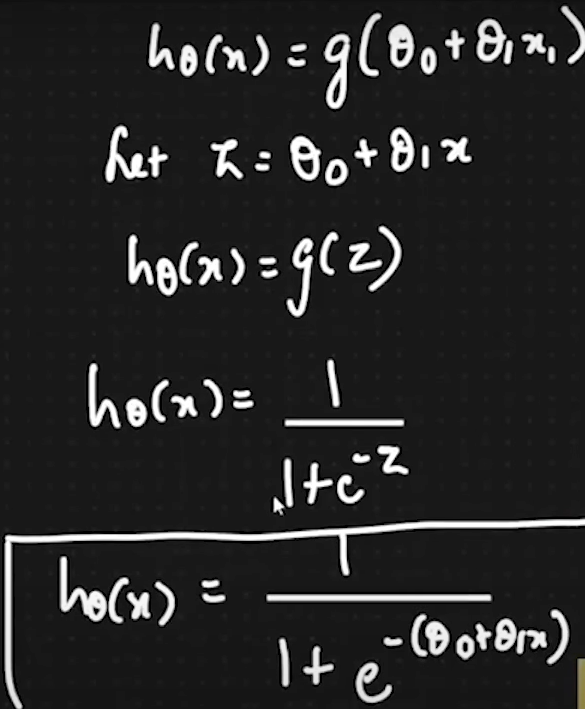 hθ(x) = g(θ₀ + θ₁x₁)
Let z = θ₀ + θ₁x
hθ(x) = g(z)
hθ(x) = 1 / (1 + e^(-z))
hθ(x) = 1 / (1 + e^(-(θ₀ + θ₁x)))